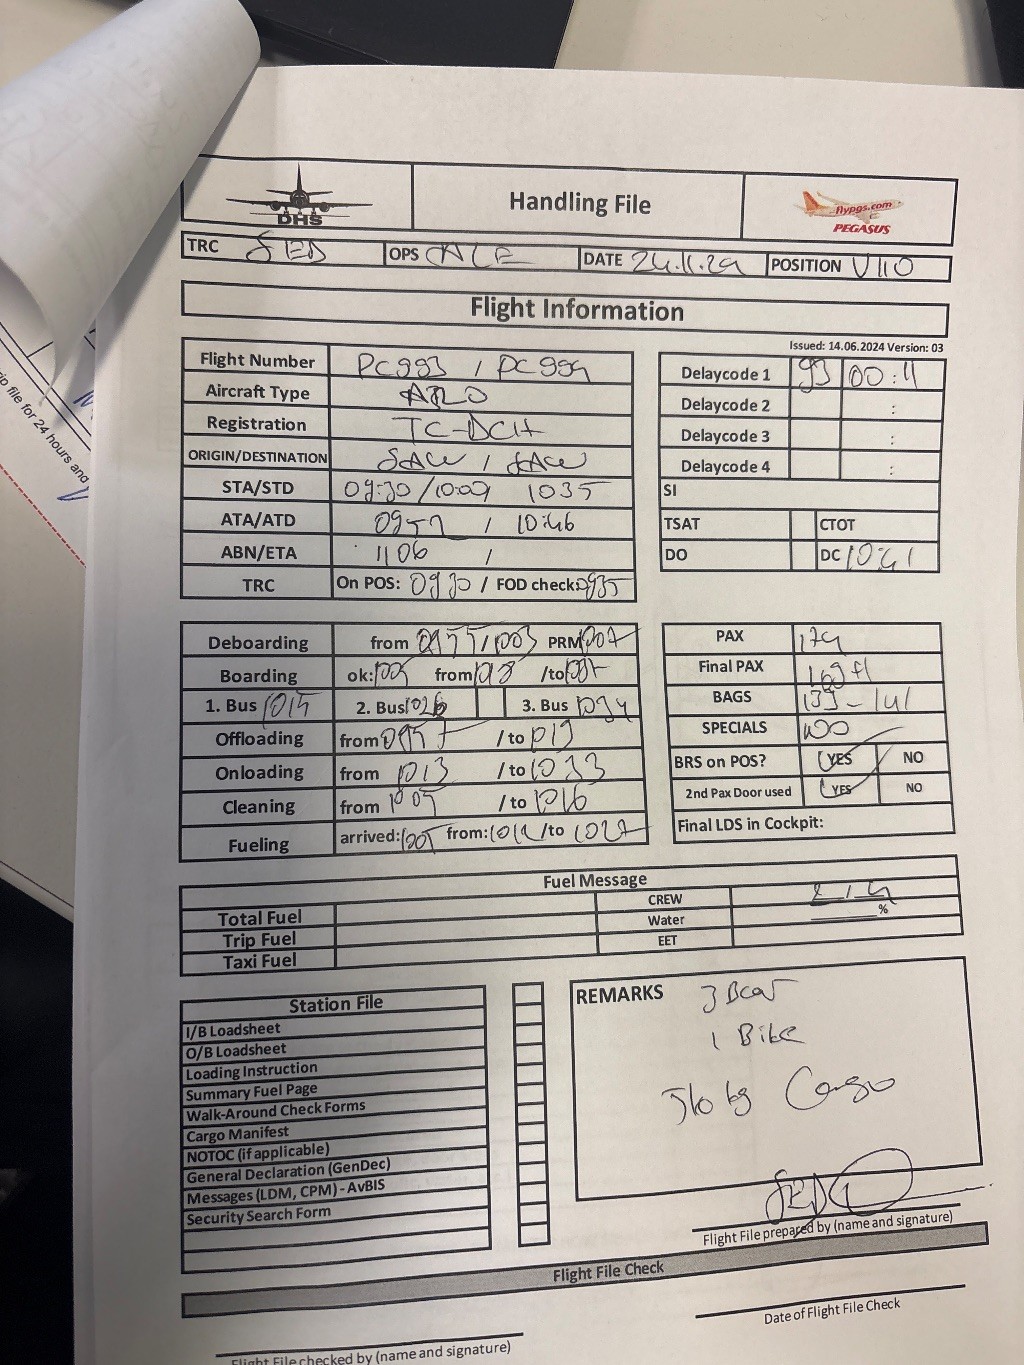 DHS
Handling File
flypgs.com
PEGASUS
TRC SED OPS DATE 24.11.24 POSITION V110
Flight Information
Issued: 14.06.2024 Version: 03
Flight Number PC993 / PC994
Aircraft Type
Registration TC-DCH
ORIGIN/DESTINATION SAW / SAW
STA/STD 09:30/10:09 1035
ATA/ATD / 10:46
ABN/ETA 1106 /
TRC On POS: 0930 / FOD check: 0935
Delaycode 1 93 00:11
Delaycode 2 :
Delaycode 3 :
Delaycode 4 :
SI
TSAT CTOT
DO DC 10:41
Deboarding from 0955/1003 PRM 1007
Boarding ok: from /to
1. Bus 1015 2. Bus 1026 3. Bus 1034
Offloading from /to 1013
Onloading from 1013 /to 1033
Cleaning from 1005 /to 1016
Fueling arrived: 1005 from: 1012 /to 1027
PAX 174
Final PAX
BAGS
SPECIALS
BRS on POS? YES NO
2nd Pax Door used YES NO
Final LDS in Cockpit:
Fuel Message
Total Fuel CREW 2/4
Trip Fuel Water %
Taxi Fuel EET
Station File
I/B Loadsheet
O/B Loadsheet
Loading Instruction
Summary Fuel Page
Walk-Around Check Forms
Cargo Manifest
NOTOC (if applicable)
General Declaration (GenDec)
Messages (LDM, CPM) - AvBIS
Security Search Form
REMARKS 3
1 Bike
kg Cargo
Flight File prepared by (name and signature)
Flight File Check
Date of Flight File Check
Flight File checked by (name and signature)
file for 24 hours and